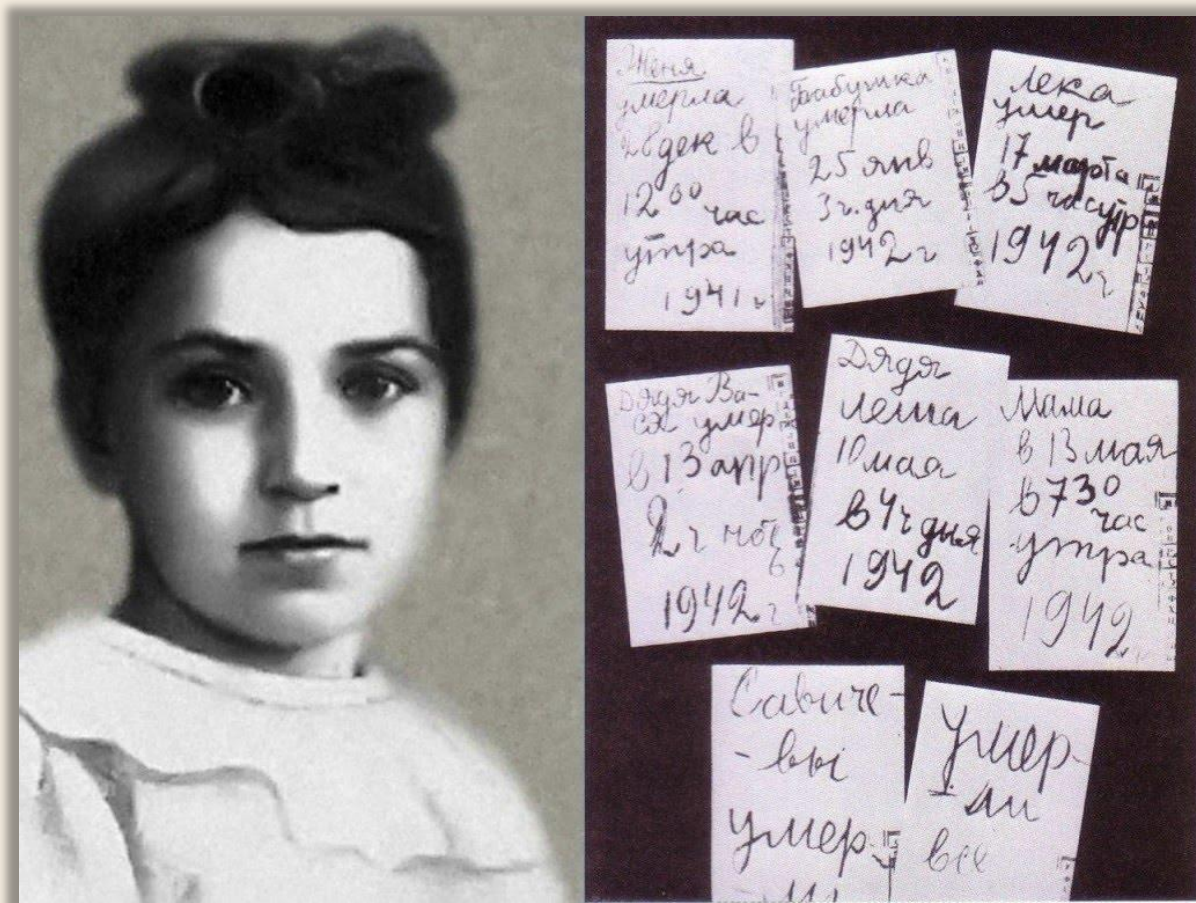 Женя
умерла
28 дек в
12 00 час
утра
1941 г
Бабушка
умерла
25 янв
3 ч. дня
1942 г
Лека
умер
17 марта
в 5 час утр
1942 г
Дядя Ва-
ся умер
в 13 апр
2 ч ночь
1942 г
Дядя
Леша
10 мая
в 4 ч дня
1942
Мама
в 13 мая
в 7 30
час
утра
1942 г
Савиче-
-вы
умер-
ли
умер-
ли
все